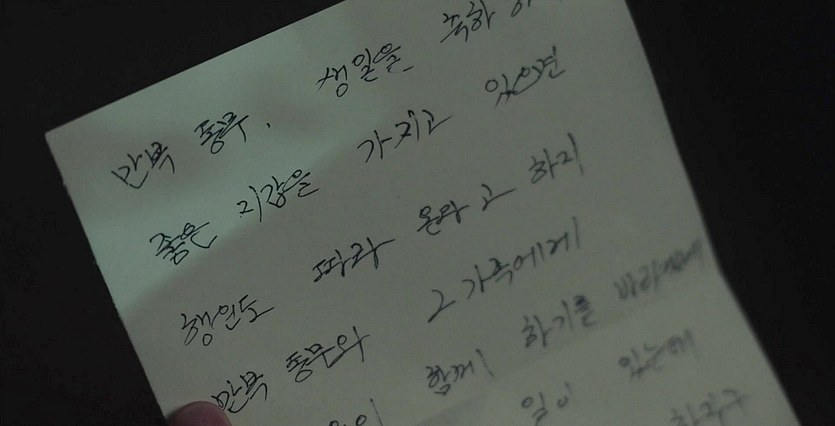 만복 동무, 생일을 축하
좋은 지갑을 가지고 있으면
행운도 따라 온다고 하지
만복 동무와 그 가족에게
함께 하기를 바라
일이 있는데